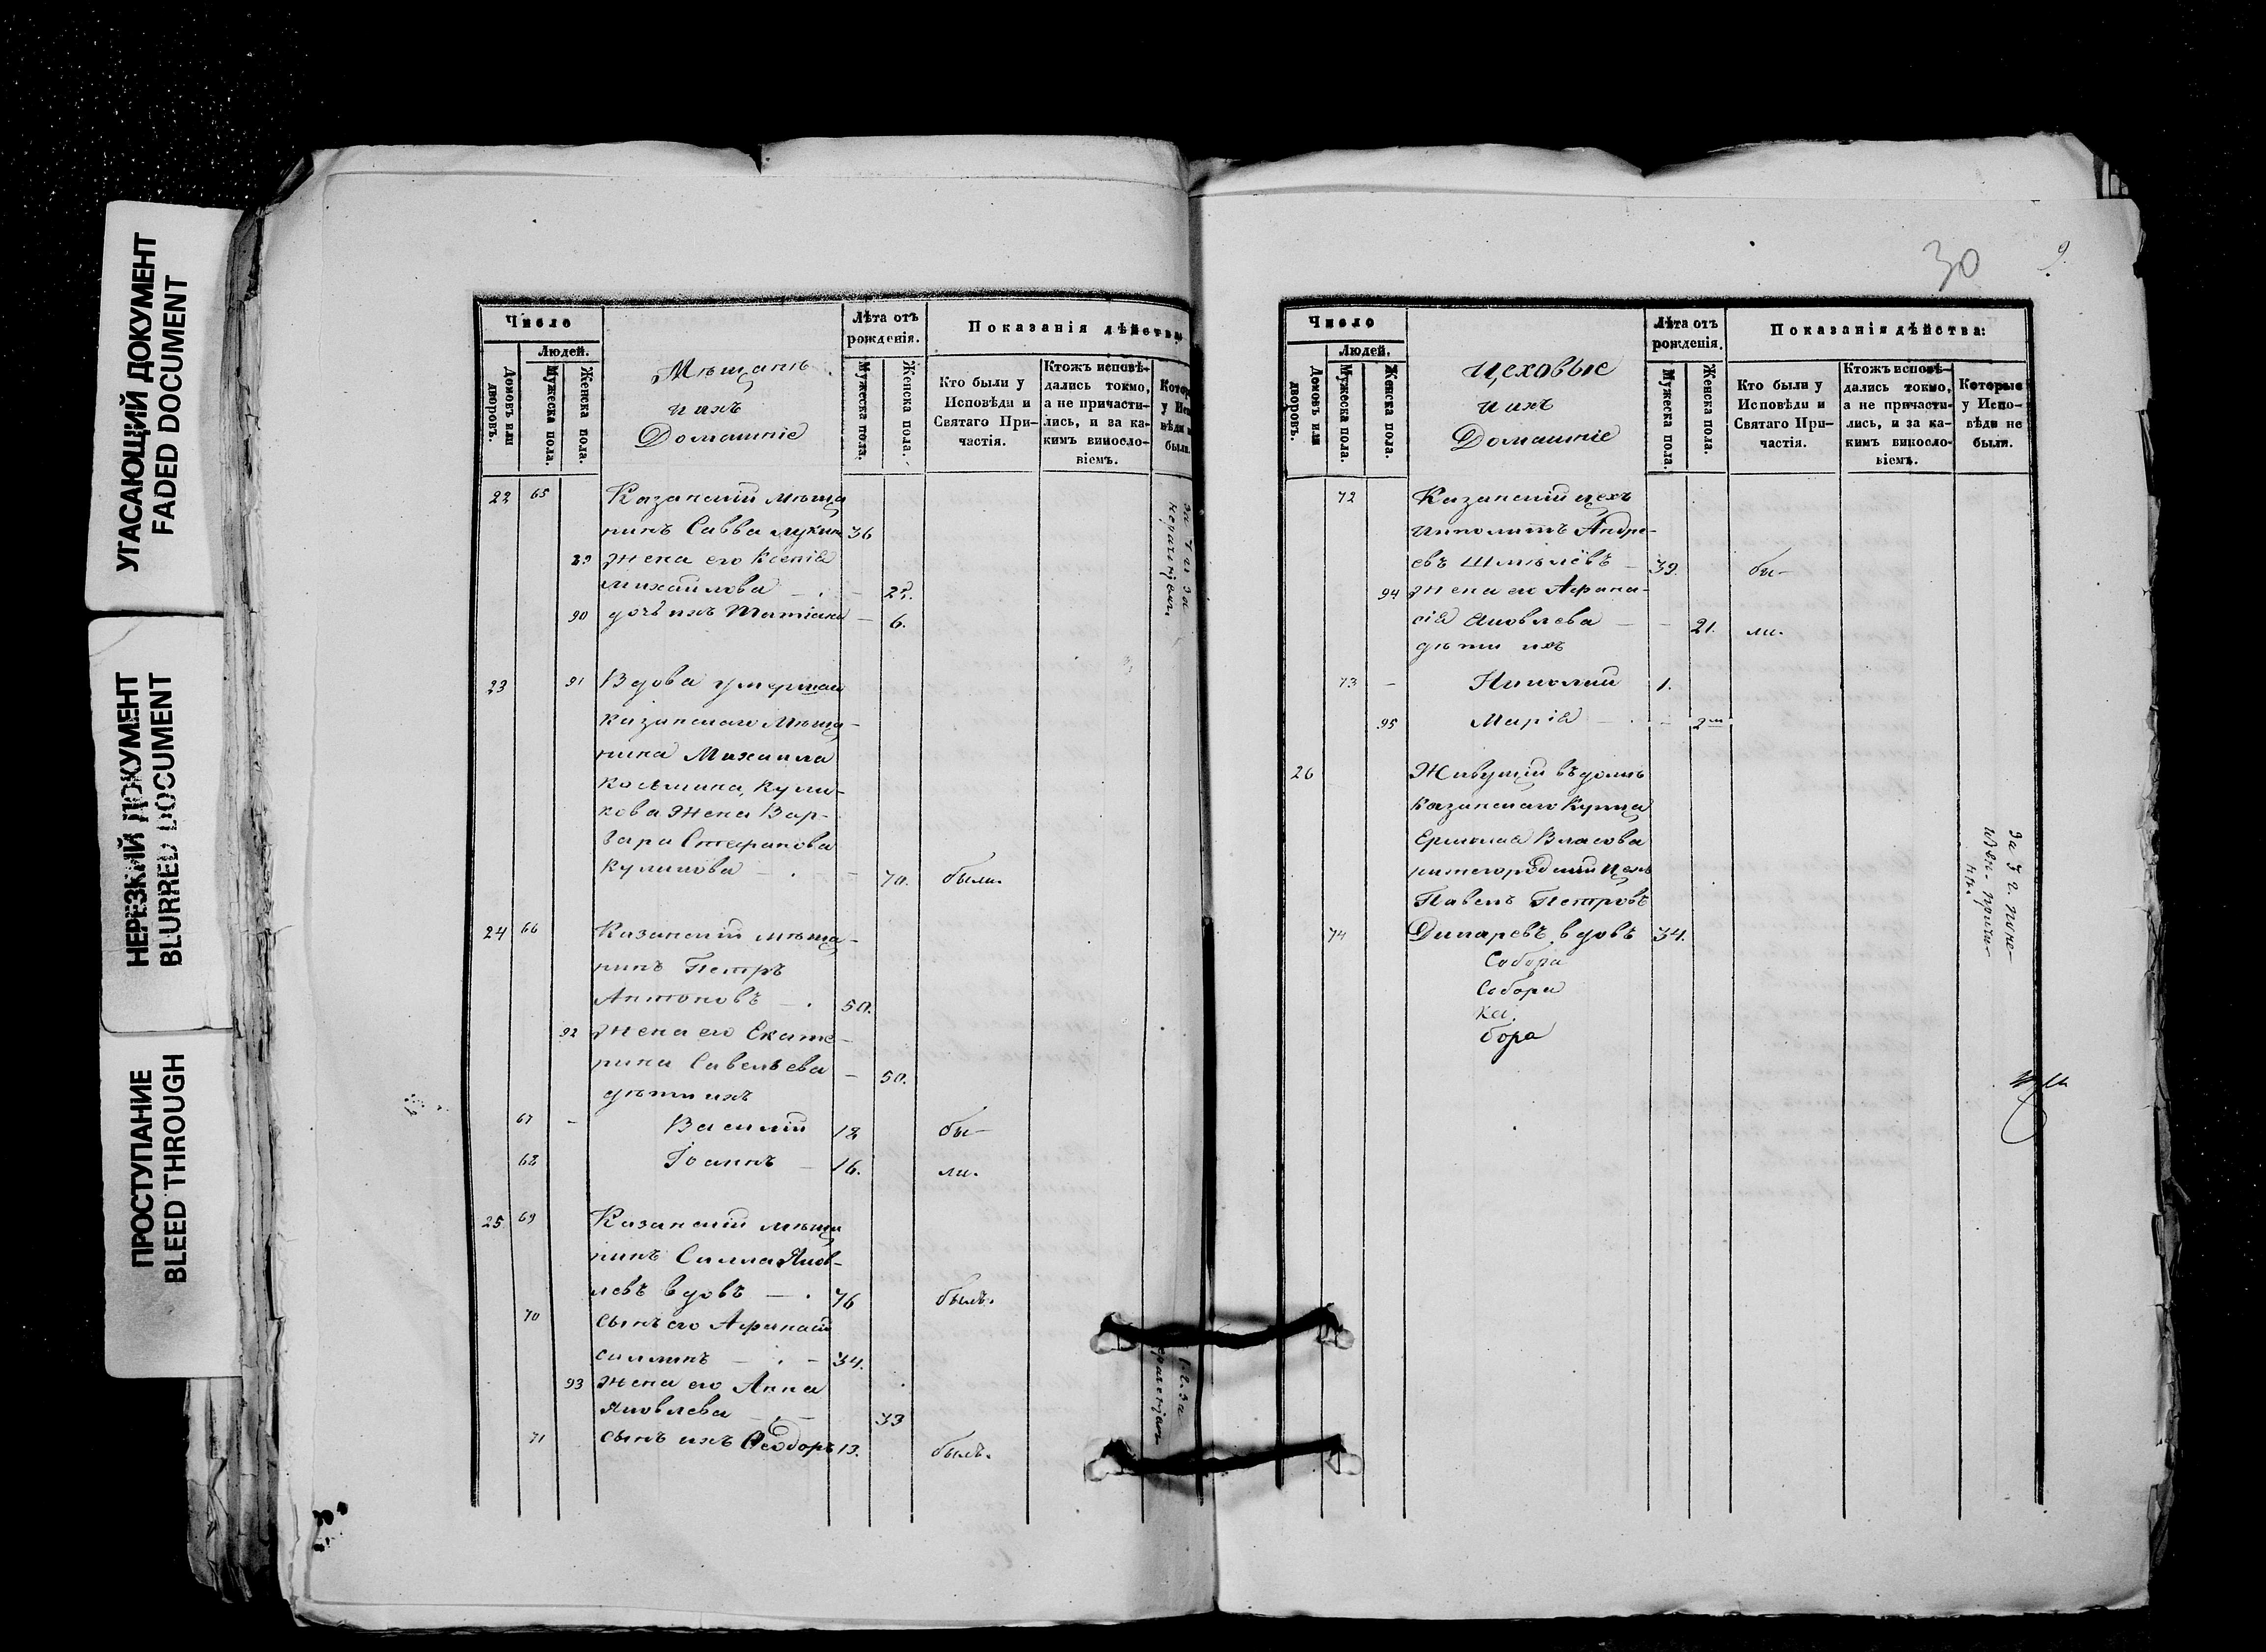 УГАСАЮЩИЙ ДОКУМЕНТ
FADED DOCUMENT
НЕРЕЗКИЙ ДОКУМЕНТ
BLURRED DOCUMENT
ПРОСТУПАНИЕ
BLEED THROUGH
Число
Людей.
Домовъ или дворовъ.
Мужеска пола.
Женска пола.
Мѣщанъ
и ихъ
Домашніе
Лѣта отъ рожденія.
Мужеска пола.
Женска пола.
Показанія дѣйства
Кто были у Исповѣди и Святаго При-частія.
Ктожъ исповѣ-дались токмо, а не причасти-лись, и за ка-кимъ винословіемъ.
Котор
у Исп
вѣди н
были.
22 65 Казанскій мѣща
нинъ Савва Лукин 36
89 жена его Ксенія
Михайлова - 27.
90 дочь ихъ Татіана - 6.
23 91 Вдова умершаго
казанскаго мѣща-
нина Михаила
Козьмина Кули-
кова жена Вар-
вара Стефанова
Куликова - 70. были.
24 66 Казанскій мѣща-
нинъ Петръ
Антоновъ - 50.
92 жена его Екате-
рина Савельева - 50.
дѣти ихъ
67 - Василій 18 бы-
68 Іоаннъ - 16. ли.
25 69 Казанскій мѣща
нинъ Силла Яков-
левъ вдовъ - 76 былъ.
70 сынъ его Афанасій
Силлинъ - 34.
93 жена его Анна
Яковлева - 33
71 сынъ ихъ Ѳеодоръ 13. былъ.
30
9.
Число
Людей.
Домовъ или дворовъ.
Мужеска пола.
Женска пола.
Цеховые
и ихъ
Домашніе
Лѣта отъ рожденія.
Мужеска пола.
Женска пола.
Показанія дѣйства:
Кто были у Исповѣди и Святаго При-частія.
Ктожъ исповѣ-дались токмо, а не причасти-лись, и за ка-кимъ винословіемъ.
Которые у Испо-вѣди не были.
72 Казанскій цехъ
Ипполитъ Андре-
евъ Шмелёвъ - 39. бы-
94 жена его Афана-
сія Яковлева - - 21. ли.
дѣти ихъ
73 - Николай 1.
95 Марія - - 2 м
26 Живущій въ домѣ
казанскаго купца
Ермолая Власова
нижегородскій цехъ
Павелъ Петровъ
74 Дикаревъ вдовъ 34.
Собора
Собора
Ка.
бора